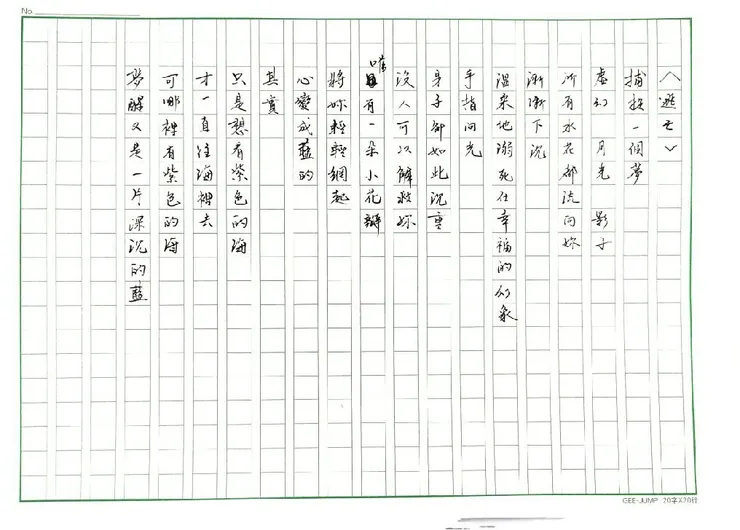 No.
〈逃亡〉
捕捉一個夢
虛幻 月光 影子
所有水花都流向妳
漸漸下沉
溫柔地溺死在幸福的幻象
手指向光
身子卻如此沉重
沒人可以解救妳
唯有一朵小花瓣
將妳輕輕綑起
心變成藍的
其實
只是想看紫色的海
才一直往海裡去
可哪裡有紫色的海
夢醒又是一片深沉的藍
GEE-JUMP 20字X20行